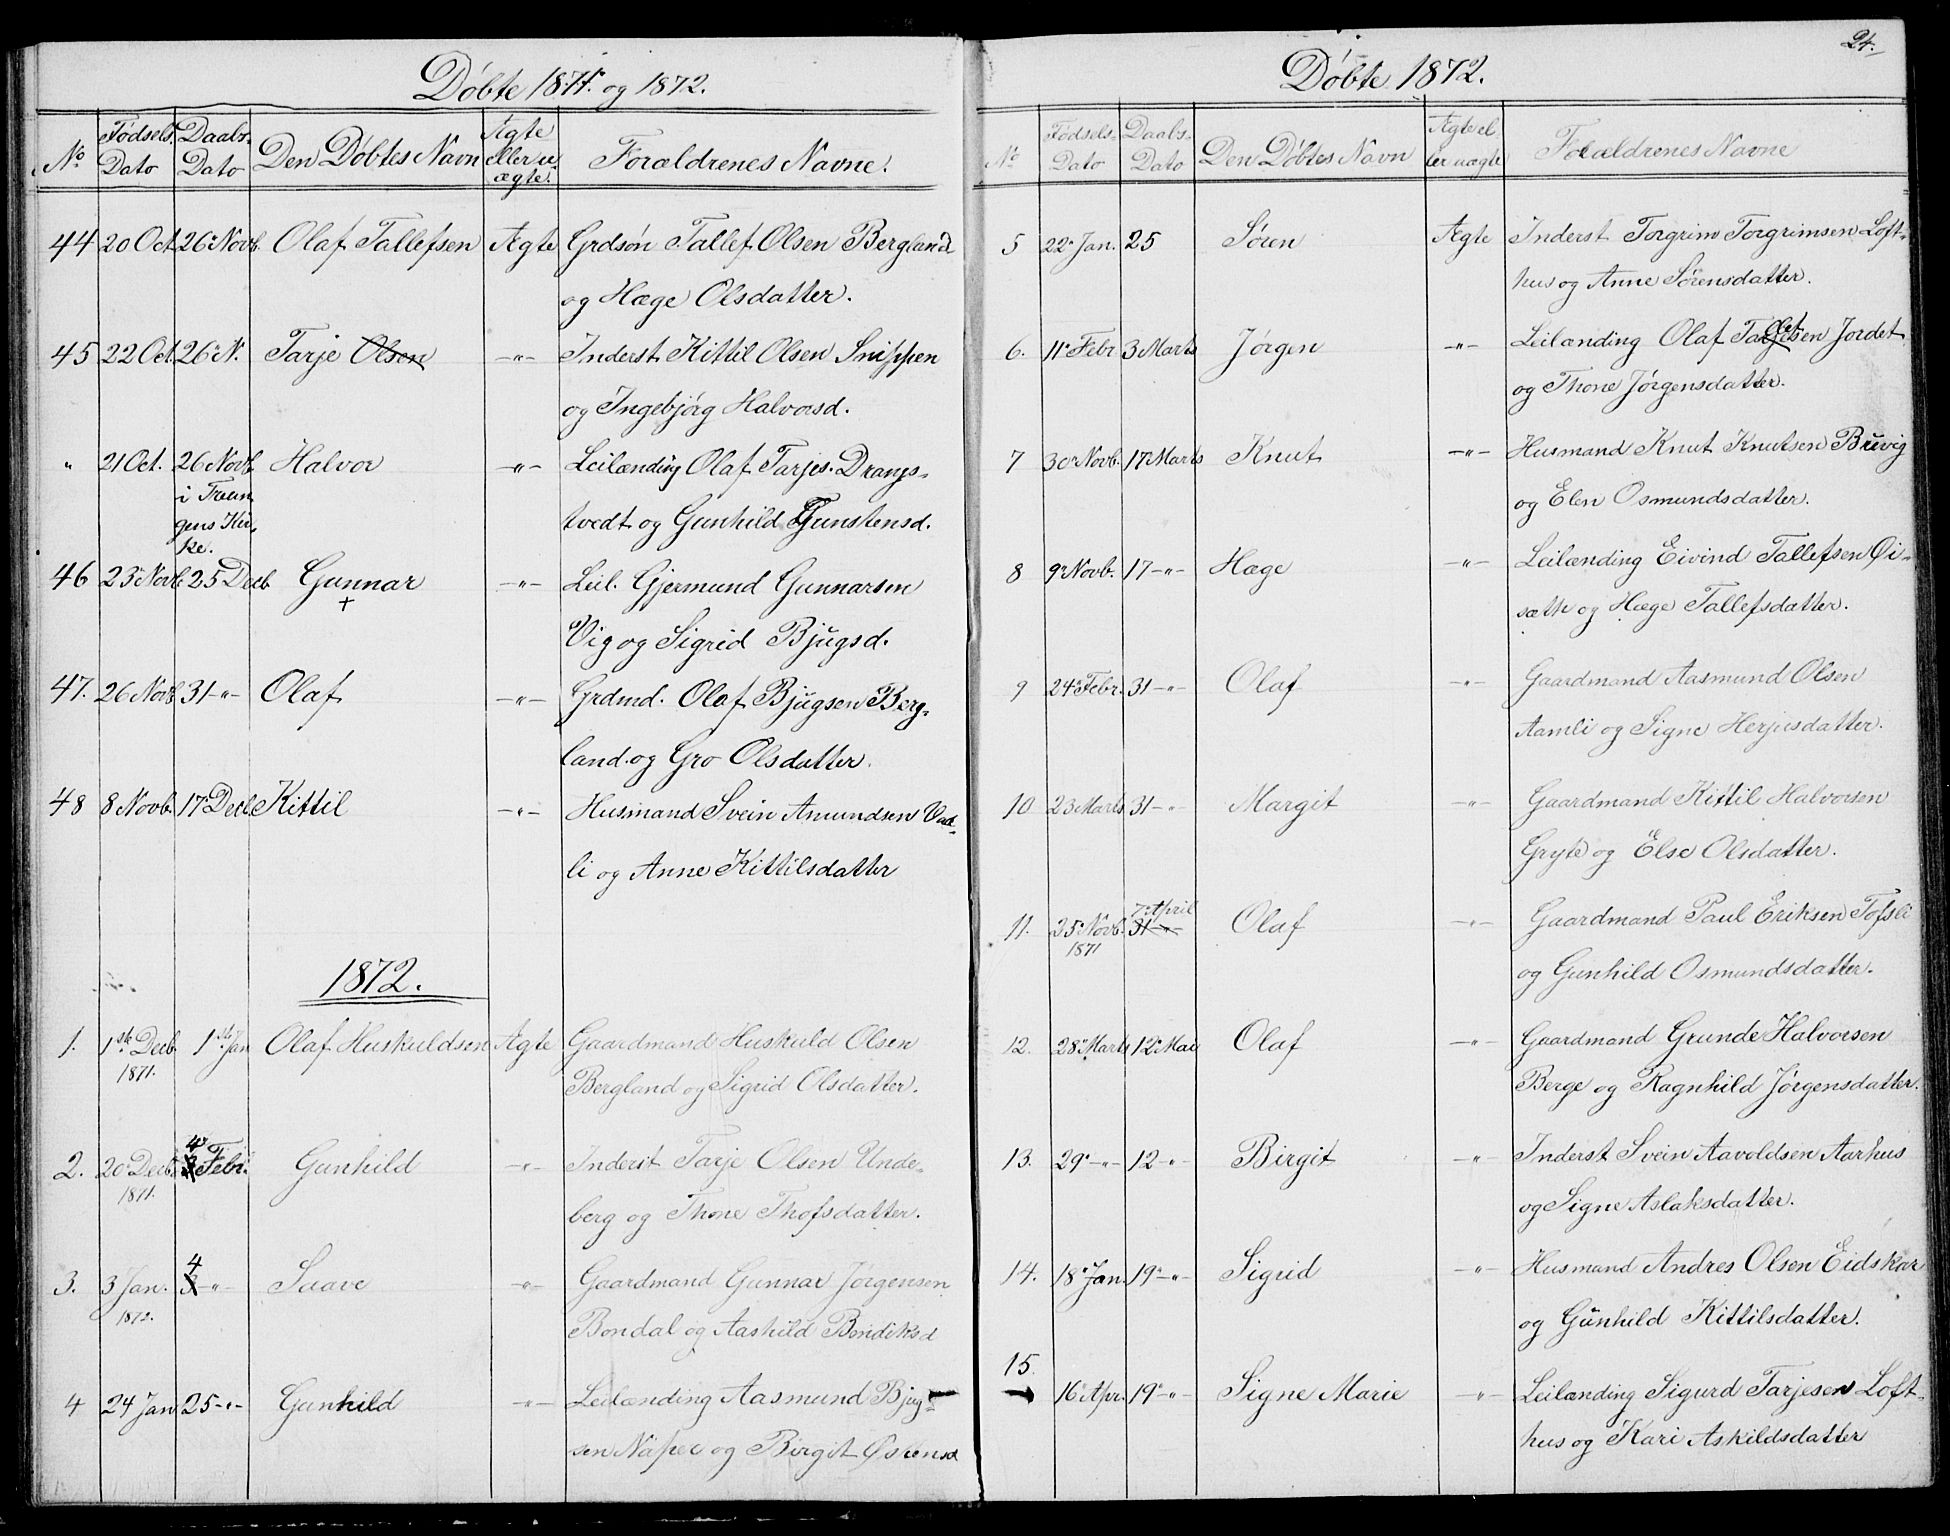 Døbte 1871. og 1872.
No Fødsels Dato Daabs- Dato Den Døbtes Navn Ægte eller u ægte. Forældrenes Navne.
44 20 Oct. 26 Novb. Olaf Tallefsen Ægte Grdsøn Tallef Olsen Bergland
og Hæge Olsdatter.
45 22 Oct. 26 N. Tarje Olsen -"- Inderst Kittil Olsen Snippen
og Ingebjörg Halvorsd.
" 21 Oct. 26 Novb. Halvor -"- Leilænding Olaf Tarjes. Drangs-
i Treun
gens Kir
ke.
tvedt og Gunhild Gunstensd.
46 23 Novb. 25 Decb. Gunnar -"- Leil. Gjermund Gunnarsen
+
Vig og Sigrid Bjugsd.
47. 26 Novb. 31 -"- Olaf -"- Grdmd. Olaf Bjugsen Berg-
land og Gro Olsdatter.
48 8 Novb. 17 Decb. Kittil -"- Husmand Svein Amundsen Vad-
li og Anne Kittilsdatter
1872.
1. 1ste Decb. 1ste Jan Olaf Huskuldsen Ægte Gaardmand Huskuld Olsen
1871.
Bergland og Sigrid Olsdatter.
2. 20 Decb. 4 Febr. Gunhild -"- Inderst Tarje Olsen Unde-
1871.
berg og Thone Thofsdatter.
3. 3 Jan. 4 -"- Saave -"- Gaardmand Gunnar Jørgensen
1872.
Bondal og Aashild Bendiksd
4 24 Jan 25 -"- Gunhild -"- Leilænding Aasmund Bjug-
sen Næpec og Birgit Østensd
24.
Døbte 1872.
No Fødsels- Dato Daabs- Dato Den Døbtes Navn Ægte el ler uægte Forældrenes Navne
5 22 Jan. 25 Søren Ægte Inderst Torgrim Torgrimsen Loft-
hus og Anne Sørensdatter.
6. 11 Febr 3 Marts Jørgen -"- Leilænding Olaf Olsen Jordet
og Thone Jørgensdatter.
7 30 Novb. 17 Marts Knut -"- Husmand Knut Knutsen Buvig
og Elen Osmundsdatter.
8 9 Novb. 17 -"- Hæge -"- Leilænding Eivind Tallefsen Øi-
sætte og Hæge Tallefsdatter.
9 24 Febr. 31 -"- Olaf -"- Gaardmand Aasmund Olsen
Aamli og Signe Herjusdatter.
10 23 Marts 31 -"- Margit -"- Gaardmand Kittil Halvorsen
Gryte og Else Olsdatter.
7 April
11. 25 Novb. 31 -"- Olaf -"- Gaardmand Paul Eriksen Tofsli
1871
og Gunhild Osmundsdatter.
12. 28 Marts 12 Mai Olaf -"- Gaardmand Grunde Halvorsen
Berge og Ragnhild Jørgensdatter.
13. 29 -"- 12 -"- Birgit -"- Inderst Svein Aavoldsen Aarhus
og Signe Aslaksdatter.
14. 18 Jan. 19 -"- Sigrid -"- Husmand Andres Olsen Eidskar
og Gunhild Kittilsdatter.
15
16 Apr. 19 -"- Signe Marie -"- Leilænding Sigurd Tarjesen Loft-
hus og Kari Askildsdatter